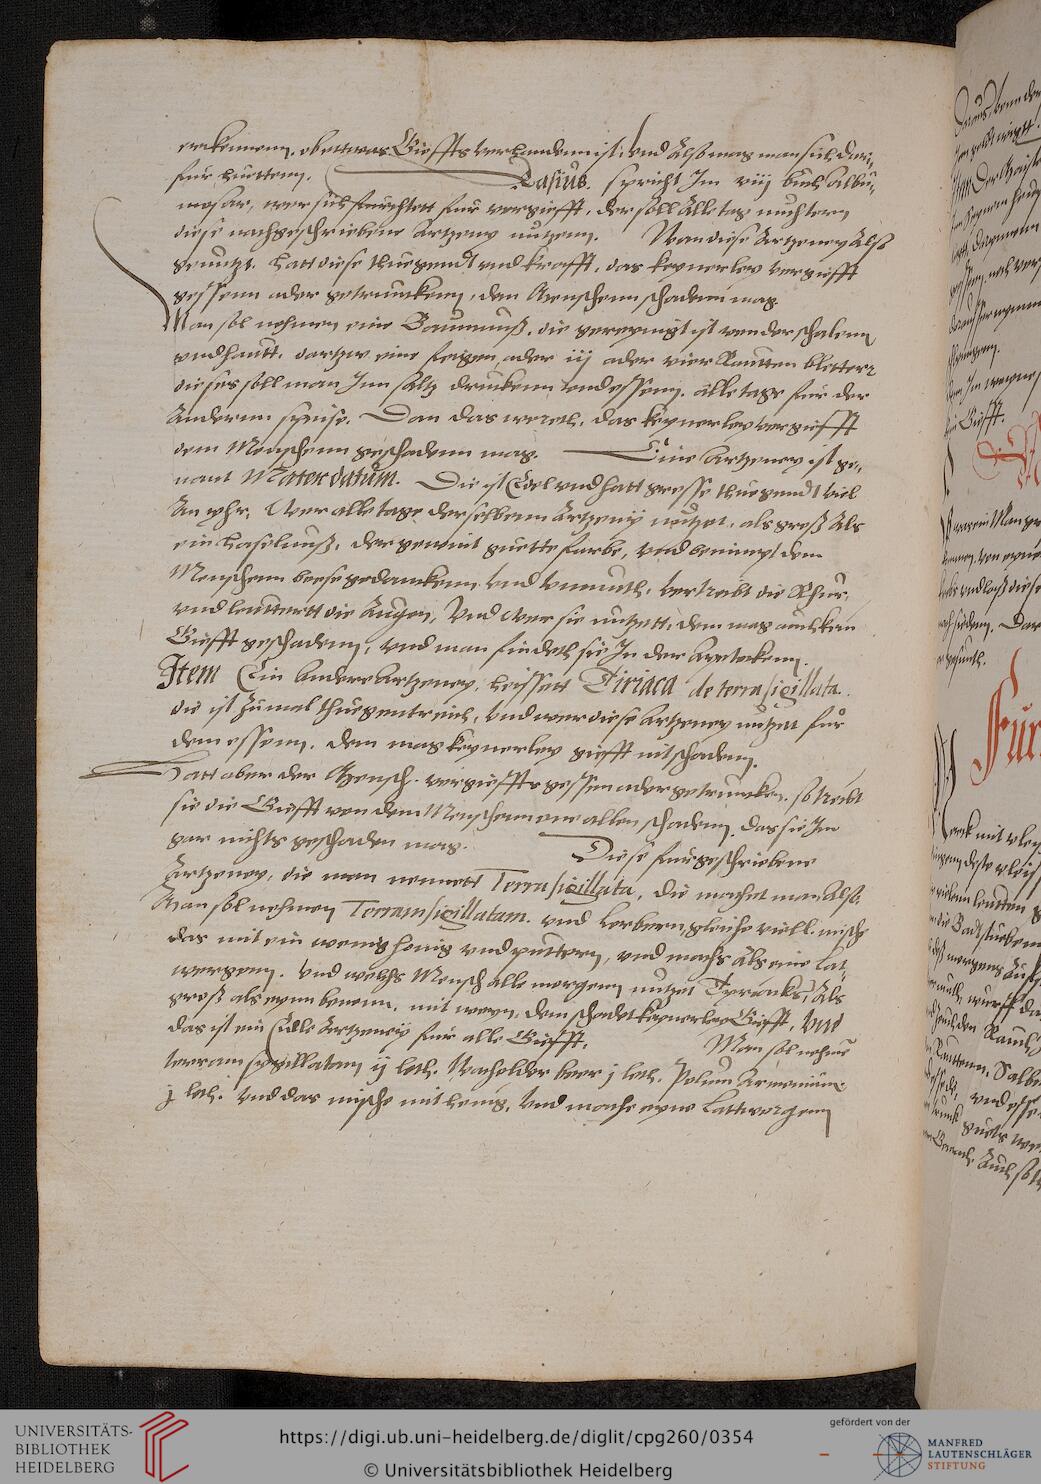 erckennenn. ob ettwas Giefft verhanden ist. Vnd Alß mag man sich dar,
für huettenn. Rasius. spricht Im viij buch albu,
mosar, wer sich fürchtett für vergiefft, der soll Alle tag nuchtern
diese nachgeschriebene Artzeney nutzenn. Wan diese Artzeney Alß
genutzt. hatt diese thuegendt vnd krafft, das keynerley vergiefft
gessenn ader getrunckenn, den Menschenn schadenn mag.
Man sol nehmen eine Baumnuß, die gereynigt ist von der schalenn
vnd hautt. dartzw eine feigen, ader iij ader vier Rautten bletter
dieses soll man Inn saltz druckenn vnd essenn. alle tage für der
Andernn speise. Dan das werth, das keynerley vergiefft
dem Menschenn geschadenn mag. Eine Artzeney ist ge,
nant Materdatum. Die ist Edel vnd hatt grosse thuegendt viel
An yhr. Wer alle tage der selbenn Artzeny nutzet, als groß Als
ein haselnuß, der gewint guette farbe, vnd benimpt dem
Menschenn boese gedanckenn vnd Vnmuth, vertreibt die Rhur,
vnd leuttertt die Augen, Vnd Wer sie nutzett, dem mag auch kein
Giefft geschadenn, vnd man findeth sie In der Apoteckenn.
Item Ein Andere Artzeney, heissett Tiriaca de terra sigillata.
die ist zumal thuegentreich, vnd wer diese Artzeney nutzet für
dem essenn. dem mag keynerley giefft nit schadenn.
Hatt aber der Mensch vergiefft gessen ader getruncken. so treibt
sie die Giefft von dem Menschenn one allen schadenn. das sie Im
gar nichts geschaden mag. Diese fürgeschriebene
Artzeney, die man nennett Terra sigillata, die machet man Alß,
Man sol nehmen Terram sigillatam. vnd Lorbern, gleiche viell. mische
das mit ein wenig honig vnd puttern, vnd machs Als eine Lat,
wergenn. Vnd welchs Mensch alle morgenn nutzet Tyriacks, Als
groß als eynn bonenn. mit weyn. dem schadet keynerley Giefft, Vnd
das ist ein Edle Artzeney für alle Giefft. Man sol nehme
terram sygillatam ij loth. Wacholder beer j loth. Polum Armenium
j loth. Vnd das mische mit honig, Vnd mache eyne Lattwergenn
Für
UNIVERSITÄTS-
BIBLIOTHEK
HEIDELBERG
https://digi.ub.uni-heidelberg.de/diglit/cpg260/0354
© Universitätsbibliothek Heidelberg
gefördert von der
MANFRED
LAUTENSCHLÄGER
STIFTUNG